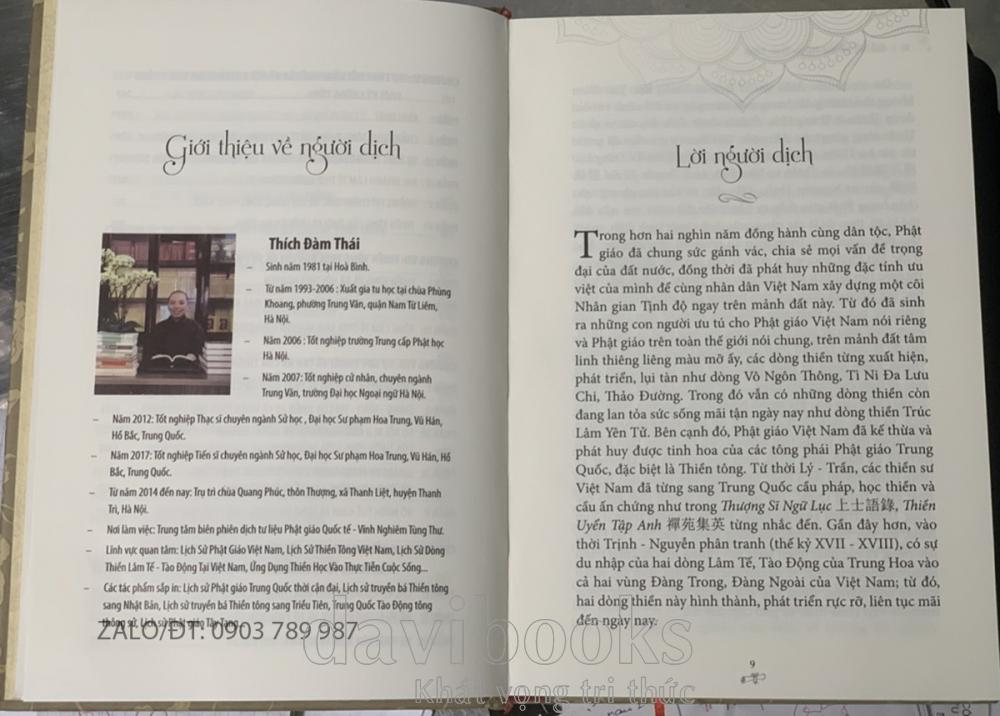 Giới thiệu về người dịch
Thích Đàm Thái
– Sinh năm 1981 tại Hoà Bình.
– Từ năm 1993-2006 : Xuất gia tu học tại chùa Phùng
Khoang, phường Trung Văn, quận Nam Từ Liêm,
Hà Nội.
– Năm 2006 : Tốt nghiệp trường Trung cấp Phật học
Hà Nội.
– Năm 2007: Tốt nghiệp cử nhân, chuyên ngành
Trung Văn, trường Đại học Ngoại ngữ Hà Nội.
– Năm 2012: Tốt nghiệp Thạc sĩ chuyên ngành Sử học , Đại học Sư phạm Hoa Trung, Vũ Hán,
Hồ Bắc, Trung Quốc.
– Năm 2017: Tốt nghiệp Tiến sĩ chuyên ngành Sử học, Đại học Sư phạm Hoa Trung, Vũ Hán, Hồ
Bắc, Trung Quốc.
– Từ năm 2014 đến nay: Trụ trì chùa Quang Phúc, thôn Thượng, xã Thanh Liệt, huyện Thanh
Trì, Hà Nội.
– Nơi làm việc: Trung tâm biên phiên dịch tư liệu Phật giáo Quốc tế - Vĩnh Nghiêm Tùng Thư.
– Lĩnh vực quan tâm: Lịch Sử Phật Giáo Việt Nam, Lịch Sử Thiền Tông Việt Nam, Lịch Sử Dòng
Thiền Lâm Tế - Tào Động Tại Việt Nam, Ứng Dụng Thiền Học Vào Thực Tiễn Cuộc Sống...
– Các tác phẩm sắp in: Lịch sử Phật giáo Trung Quốc thời cận đại, Lịch sử truyền bá Thiền tông
sang Nhật Bản, Lịch sử truyền bá Thiền tông sang Triều Tiên, Trung Quốc Tào Động tông
thông sử, Lịch sử Phật giáo Tây Tạng...
ZALO/ĐT: 0903 789 987
Lời người dịch
Trong hơn hai nghìn năm đồng hành cùng dân tộc, Phật
giáo đã chung sức gánh vác, chia sẻ mọi vấn đề trọng
đại của đất nước, đồng thời đã phát huy những đặc tính ưu
việt của mình để cùng nhân dân Việt Nam xây dựng một cõi
Nhân gian Tịnh độ ngay trên mảnh đất này. Từ đó đã sinh
ra những con người ưu tú cho Phật giáo Việt Nam nói riêng
và Phật giáo trên toàn thế giới nói chung, trên mảnh đất tâm
linh thiêng liêng màu mỡ ấy, các dòng thiền từng xuất hiện,
phát triển, lụi tàn như dòng Vô Ngôn Thông, Tì Ni Đa Lưu
Chi, Thảo Đường. Trong đó vẫn có những dòng thiền còn
đang lan tỏa sức sống mãi tận ngày nay như dòng thiền Trúc
Lâm Yên Tử. Bên cạnh đó, Phật giáo Việt Nam đã kế thừa và
phát huy được tinh hoa của các tông phái Phật giáo Trung
Quốc, đặc biệt là Thiền tông. Từ thời Lý - Trần, các thiền sư
Việt Nam đã từng sang Trung Quốc cầu pháp, học thiền và
cầu ấn chứng như trong Thượng Sĩ Ngữ Lục 上士語錄, Thiền
Uyển Tập Anh 禪苑集英 từng nhắc đến. Gần đây hơn, vào
thời Trịnh - Nguyễn phân tranh (thế kỷ XVII - XVIII), có sự
du nhập của hai dòng Lâm Tế, Tào Động của Trung Hoa vào
cả hai vùng Đàng Trong, Đàng Ngoài của Việt Nam; từ đó,
hai dòng thiền này hình thành, phát triển rực rỡ, liên tục mãi
đến ngày nay.
9
davibooks
Khát vọng tri thức